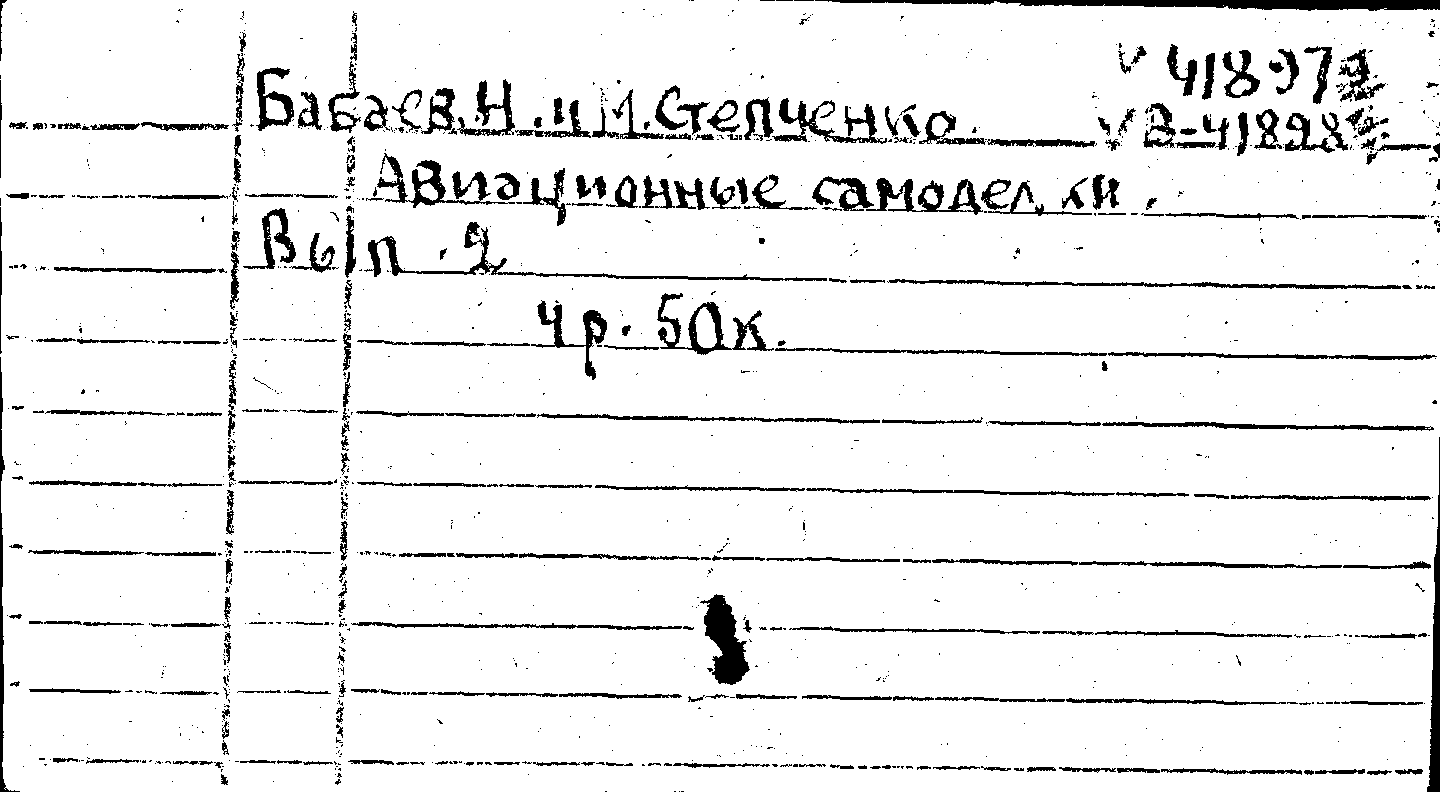 V 41897
Бабаев.Н.и М.Степченко. V В-41898
Авиационные самоделки.
Вып.2
4р.50к.